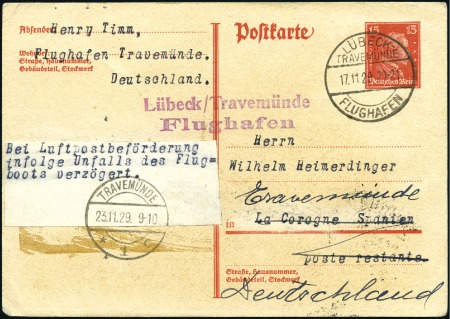 Absender:
Henry Timm,
Flughafen Travemünde.
Wohnort
Straße, Hausnummer,
Gebäudeteil, Stockwerk
Deutschland.
Lübeck/Travemünde
Flughafen
Bei Luftpostbeförderung
infolge Unfalls des Flug=
boots verzögert.
TRAVEMÜNDE
23.11.29. 9-10
Postkarte
15 15
Deutsches Reich
LÜBECK
TRAVEMÜNDE
17.11.2
FLUGHAFEN
Herrn
Wilhelm Heimerdinger
Travemünde
La Corogne Spanien
in
poste restante.
Straße, Hausnummer,
Gebäudeteil, Stockwerk
Deutschland